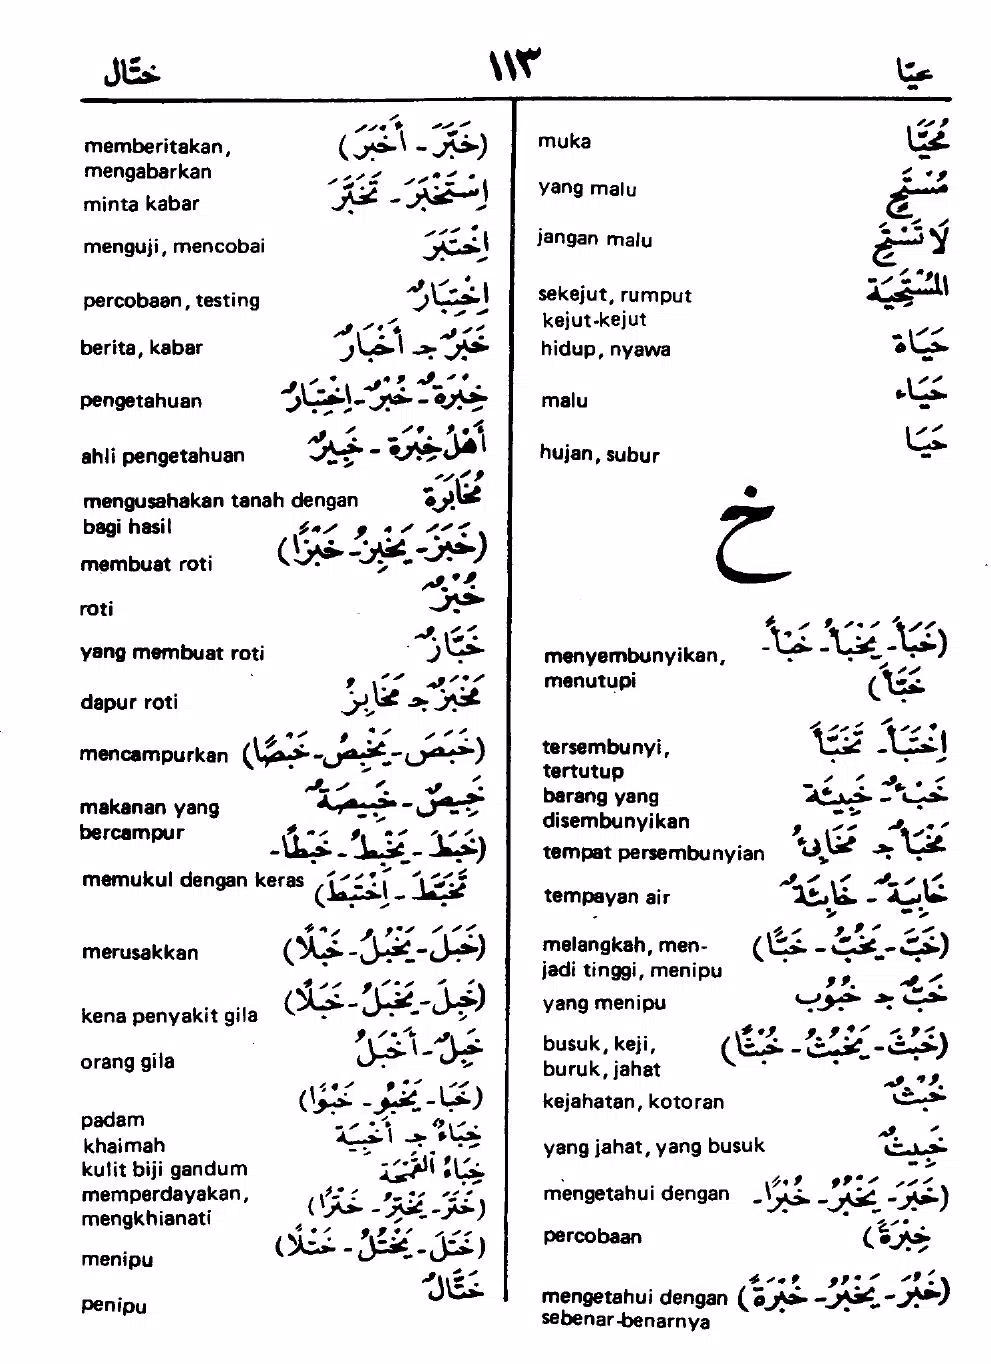 محيّا
١١٣
ختّال
مُحَيَّا muka
مُسْتَحٍ yang malu
لَا تَسْتَحِ jangan malu
المُسْتَحِيَة sekejut, rumput
kejut-kejut
حَيَاة hidup, nyawa
حَيَاء malu
حَيَا hujan, subur
خ
(خَبَأَ - يَخْبَأُ - خَبْأً -
menyembunyikan,
خَبَّأَ) menutupi
اِخْتَبَأَ - تَخَبَّأَ tersembunyi,
tertutup
خَبْءٌ - خَبِيْئَة barang yang
disembunyikan
مَخْبَأٌ جـ مَخَابِئُ tempat persembunyian
خَابِيَةٌ - خَابِئَةٌ tempayan air
(خَبَّ - يَخُبُّ - خَبًّا) melangkah, men-
jadi tinggi, menipu
خَبٌّ جـ خُبُوب yang menipu
(خَبُثَ - يَخْبُثُ - خُبْثًا) busuk, keji,
buruk, jahat
خُبْثٌ kejahatan, kotoran
خَبِيثٌ yang jahat, yang busuk
(خَبَرَ - يَخْبُرُ - خُبْرًا - mengetahui dengan
خِبْرَةً) percobaan
(خَبُرَ - يَخْبُرُ - خُبْرَةً) mengetahui dengan
sebenar-benarnya
(خَبَّرَ - أَخْبَرَ) memberitakan,
mengabarkan
اِسْتَخْبَرَ - تَخَبَّرَ minta kabar
اِخْتَبَرَ menguji, mencobai
اِخْتِبَارٌ percobaan, testing
خَبَرٌ جـ أَخْبَارٌ berita, kabar
خِبْرَةٌ - خُبْرٌ - اِخْتِبَارٌ pengetahuan
أَهْلُ خِبْرَة - خَبِيرٌ ahli pengetahuan
مُخَابَرَة mengusahakan tanah dengan
bagi hasil
(خَبَزَ - يَخْبِزُ - خَبْزًا) membuat roti
خُبْزٌ roti
خَبَّازٌ yang membuat roti
مَخْبَزٌ جـ مَخَابِزُ dapur roti
(خَبَصَ - يَخْبِصُ - خَبْصًا) mencampurkan
خَبِيصٌ - خَبِيصَةٌ makanan yang
bercampur
(خَبَطَ - يَخْبِطُ - خَبْطًا -
تَخَبَّطَ - اِخْتَبَطَ) memukul dengan keras
(خَبَلَ - يَخْبُلُ - خَبْلًا) merusakkan
(خَبِلَ - يَخْبَلُ - خَبَلًا) kena penyakit gila
خَبِلٌ - أَخْبَلُ orang gila
(خَبَا - يَخْبُو - خَبْوًا) padam
خِبَاءٌ جـ أَخْبِيَة khaimah
خِبَاءُ القَمْحَة kulit biji gandum
(خَتَرَ - يَخْتِرُ - خَتْرًا) memperdayakan,
mengkhianati
(خَتَلَ - يَخْتُلُ - خَتْلًا) menipu
خَتَّالٌ penipu